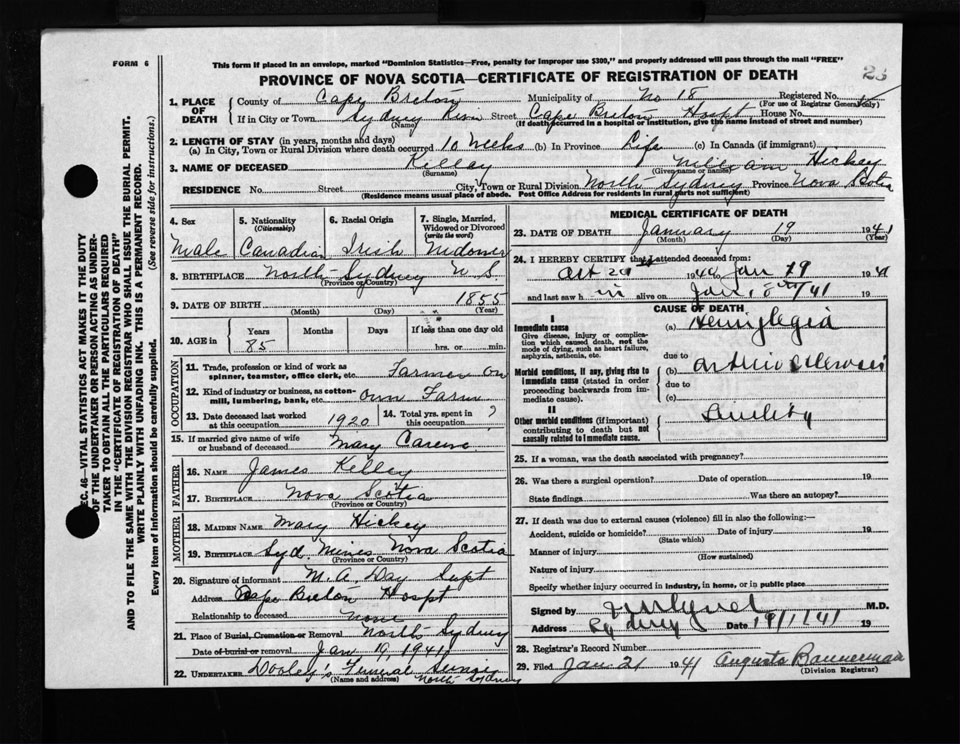 FORM 6
This form if placed in an envelope, marked "Dominion Statistics—Free, penalty for improper use $300," and properly addressed will pass through the mail "FREE"
PROVINCE OF NOVA SCOTIA—CERTIFICATE OF REGISTRATION OF DEATH
1. PLACE OF DEATH { County of Cape Breton Municipality of No 18 Registered No.
(For use of Registrar General only)
If in City or Town Sydney River Street Cape Breton Hospt House No.
(Name) (If death occurred in a hospital or institution, give the name instead of street and number)
2. LENGTH OF STAY (in years, months and days)
(a) In City, Town or Rural Division where death occurred 10 weeks (b) In Province Life (c) In Canada (if immigrant)
3. NAME OF DECEASED Killey William Hickey
(Surname) (Given name or names)
RESIDENCE No. Street City, Town or Rural Division North Sydney Province Nova Scotia
(Residence means usual place of abode. Post Office Address for residents in rural parts not sufficient)
4. Sex 5. Nationality (Citizenship) 6. Racial Origin 7. Single, Married, Widowed or Divorced (write the word)
Male Canadian Irish Widower
8. BIRTHPLACE North Sydney N S
(Province or Country)
9. DATE OF BIRTH 1855
(Month) (Day) (Year)
10. AGE in { Years Months Days If less than one day old
85 hrs. or min.
OCCUPATION
11. Trade, profession or kind of work as spinner, teamster, office clerk, etc. Farmer on
12. Kind of industry or business, as cotton-mill, lumbering, bank, etc. own Farm
13. Date deceased last worked at this occupation 1920 14. Total yrs. spent in this occupation ?
15. If married give name of wife or husband of deceased Mary
FATHER
16. NAME James Kelley
17. BIRTHPLACE Nova Scotia
(Province or Country)
MOTHER
18. MAIDEN NAME Mary Hickey
19. BIRTHPLACE Syd Mines Nova Scotia
(Province or Country)
20. Signature of informant M. A. Day Supt
Address Cape Breton Hospt
Relationship to deceased None
21. Place of Burial, Cremation or Removal North Sydney
Date of burial or removal Jan 19, 1941
22. UNDERTAKER Dooley's Funeral Service
(Name and address) North Sydney
MEDICAL CERTIFICATE OF DEATH
23. DATE OF DEATH January 19 1941
(Month) (Day) (Year)
24. I HEREBY CERTIFY that I attended deceased from:
Oct 29 1940 to Jan 19 1941
and last saw h im alive on Jan 18th/41
CAUSE OF DEATH
I
Immediate cause
Give disease, injury or complication which caused death, not the mode of dying, such as heart failure, asphyxia, asthenia, etc.
(a) Hemiplegia
due to
Morbid conditions, if any, giving rise to immediate cause (stated in order proceeding backwards from immediate cause).
(b) Arterio Sclerosis
due to
(c)
II
Other morbid conditions (if important) contributing to death but not causally related to immediate cause.
Senility
25. If a woman, was the death associated with pregnancy?
26. Was there a surgical operation? Date of operation 19
State findings Was there an autopsy?
27. If death was due to external causes (violence) fill in also the following:—
Accident, suicide or homicide? Date of injury 19
(State which)
Manner of injury
(How sustained)
Nature of injury
Specify whether injury occurred in industry, in home, or in public place
Signed by M.D.
Address Sydney Date 19/1/41 19
28. Registrar's Record Number
29. Filed Jan. 21 1941 Augusta Bannerman
(Division Registrar)
SEC. 46—VITAL STATISTICS ACT MAKES IT THE DUTY
OF THE UNDERTAKER OR PERSON ACTING AS UNDER-
TAKER TO OBTAIN ALL THE PARTICULARS REQUIRED
IN THE "CERTIFICATE OF REGISTRATION OF DEATH"
AND TO FILE THE SAME WITH THE DIVISION REGISTRAR WHO SHALL ISSUE THE BURIAL PERMIT.
WRITE PLAINLY WITH UNFADING INK. THIS IS A PERMANENT RECORD.
Every item of Information should be carefully supplied. (See reverse side for instructions.)